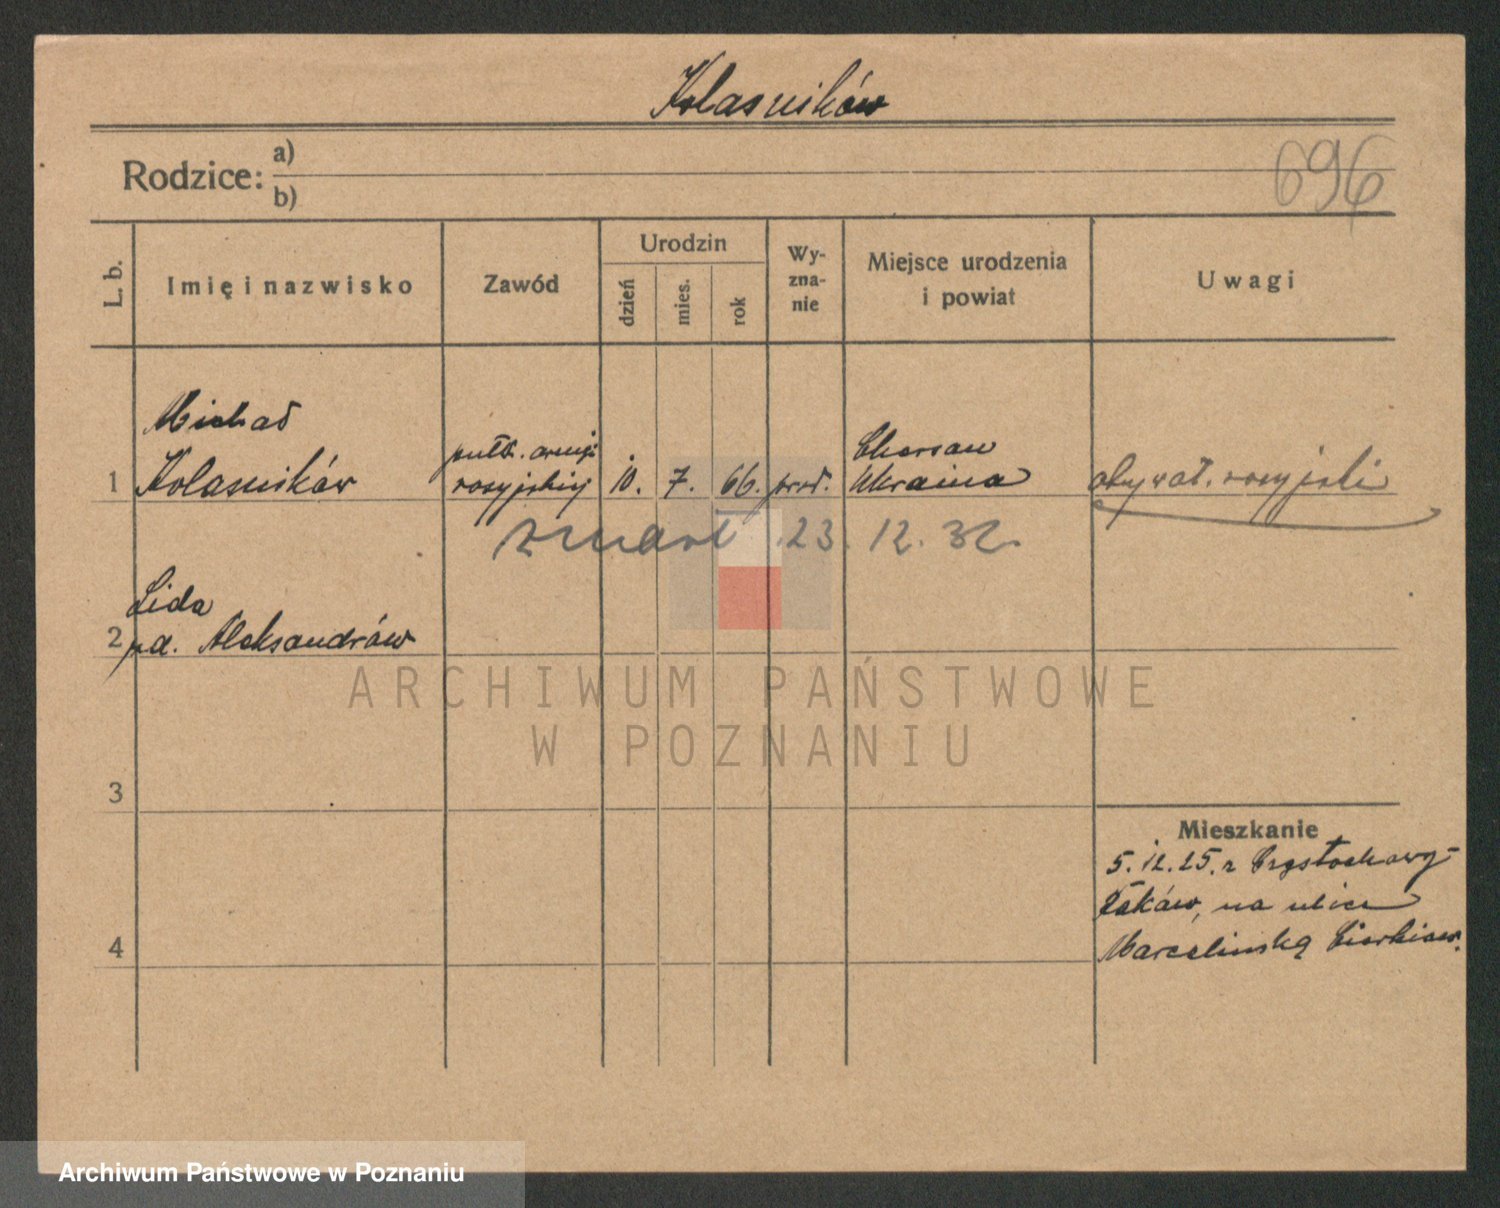 Kolasników
Rodzice: a)
b)
696
L. b.
Imię i nazwisko
Zawód
Urodzin
dzień
mies.
rok
Wy-
zna-
nie
Miejsce urodzenia
i powiat
Uwagi
1
Michał
Kolasników
pułk. armji
rosyjskiej
10.
7.
66.
praw.
Chersan
Ukraina
obywat. rosyjski
zmarł 23. 12. 32.
2
Lida
pd. Aleksandrów
ARCHIWUM PAŃSTWOWE
W POZNANIU
3
Mieszkanie
5.12.25. z Częstochowy-
Raków, na ulice
Marcelińską
4
Archiwum Państwowe w Poznaniu